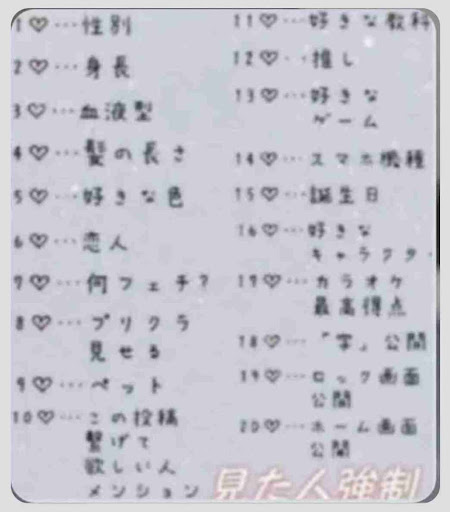 1♡…性別
2♡…身長
3♡…血液型
4♡…髪の長さ
5♡…好きな色
6♡…恋人
7♡…何フェチ?
8♡…プリクラ
見せる
9♡…ペット
10♡…この投稿
繋げて
欲しい人
メンション
11♡…好きな教科
12♡…推し
13♡…好きな
ゲーム
14♡…スマホ機種
15♡…誕生日
16♡…好きな
キャラクター
17♡…カラオケ
最高得点
18♡…「字」公開
19♡…ロック画面
公開
20♡…ホーム画面
公開
見た人強制